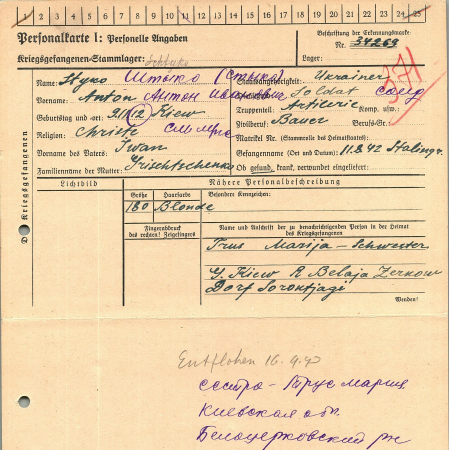 1 2 3 4 5 6 7 8 9 10 11 12 13 14 15 16 17 18 19 20 21 22 23 24 25
Personalkarte I: Personelle Angaben
Kriegsgefangenen-Stammlager:
Beschriftung der Erkennungsmarke
Nr. 34269
Lager:
Des Kriegsgefangenen
Name: Styko Штыко (Стыко)
Vorname: Anton Антон Иванович
Geburtstag und -ort: Kiew
Religion: Christe
Vorname des Vaters: Iwan
Familienname der Mutter: Grischtschenko
Staatsangehörigkeit: Ukrainer
Soldat солд
Truppenteil: Artilerie Komp. usw.:
Zivilberuf: Bauer Berufs-Gr.:
Matrikel Nr. (Stammrolle des Heimatstaates):
Gefangennahme (Ort und Datum): 11.8.42 Stalingr.
Ob gesund, krank, verwundet eingeliefert:
Lichtbild
Nähere Personalbeschreibung
Größe Haarfarbe Besondere Kennzeichen:
180 Blonde
Fingerabdruck
des rechten! Zeigefingers
Name und Anschrift der zu benachrichtigenden Person in der Heimat
des Kriegsgefangenen
Trus Marija - Schwester
G. Kiew R Belaja Zerkow
Dorf
Wenden!
Entflohen
сестра - Трус Мария
Киевская обл.
Белоцерковский рн